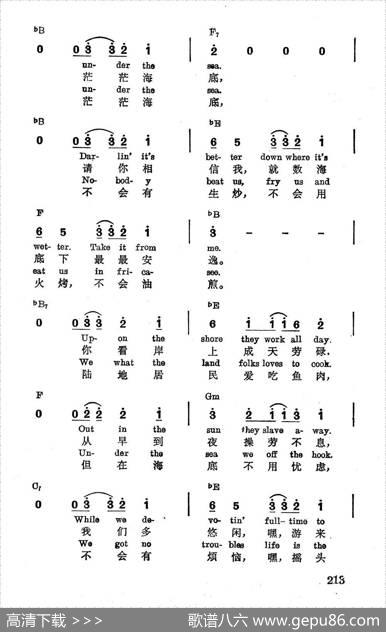 bB F7
0 0 3 3 2 1 2 0 0 0
un- der the sea.
茫 茫 海 底，
un- der the sea.
茫 茫 海 底，
bB bE
0 0 3 3 2 1 6 5 3 3 2 1
Dar- lin' it's bet- ter down where it's
请 你 相 信 我，就 数 海
No- bod- y beat us, fry us and
不 会 有 生 炒，不 会 用
F bB
6 5 3 3 2 1 3 - - -
wet- ter. Take it from me.
底 下 最 最 安 逸。
eat us in fri- ca- see.
火 烤，不 会 油 煎。
bB7 bE
0 0 3 3 2 1 6 1 1 1 6 2
Up- on the shore they work all day.
你 看 岸 上 成 天 劳 碌.
We what the land folks loves to cook.
陆 地 居 民 爱 吃 鱼 肉，
F Gm
0 0 2 2 2 1 3 2 1 1 3 1
Out in the sun they slave a- way.
从 早 到 夜 操 劳 不 息，
Un- der the sea we off the hook.
但 在 海 底 不 用 忧 虑，
C7 bE
0 0 3 3 2 1 6 5 3 3 2 1
While we de- vo- tin' full- time to
我 们 多 悠 闲，嘿，游 来
We got no trou- bles life is the
不 会 有 烦 恼，嘿，摇 头
213
高清下载 >>> 歌谱八六 www.gepu86.com